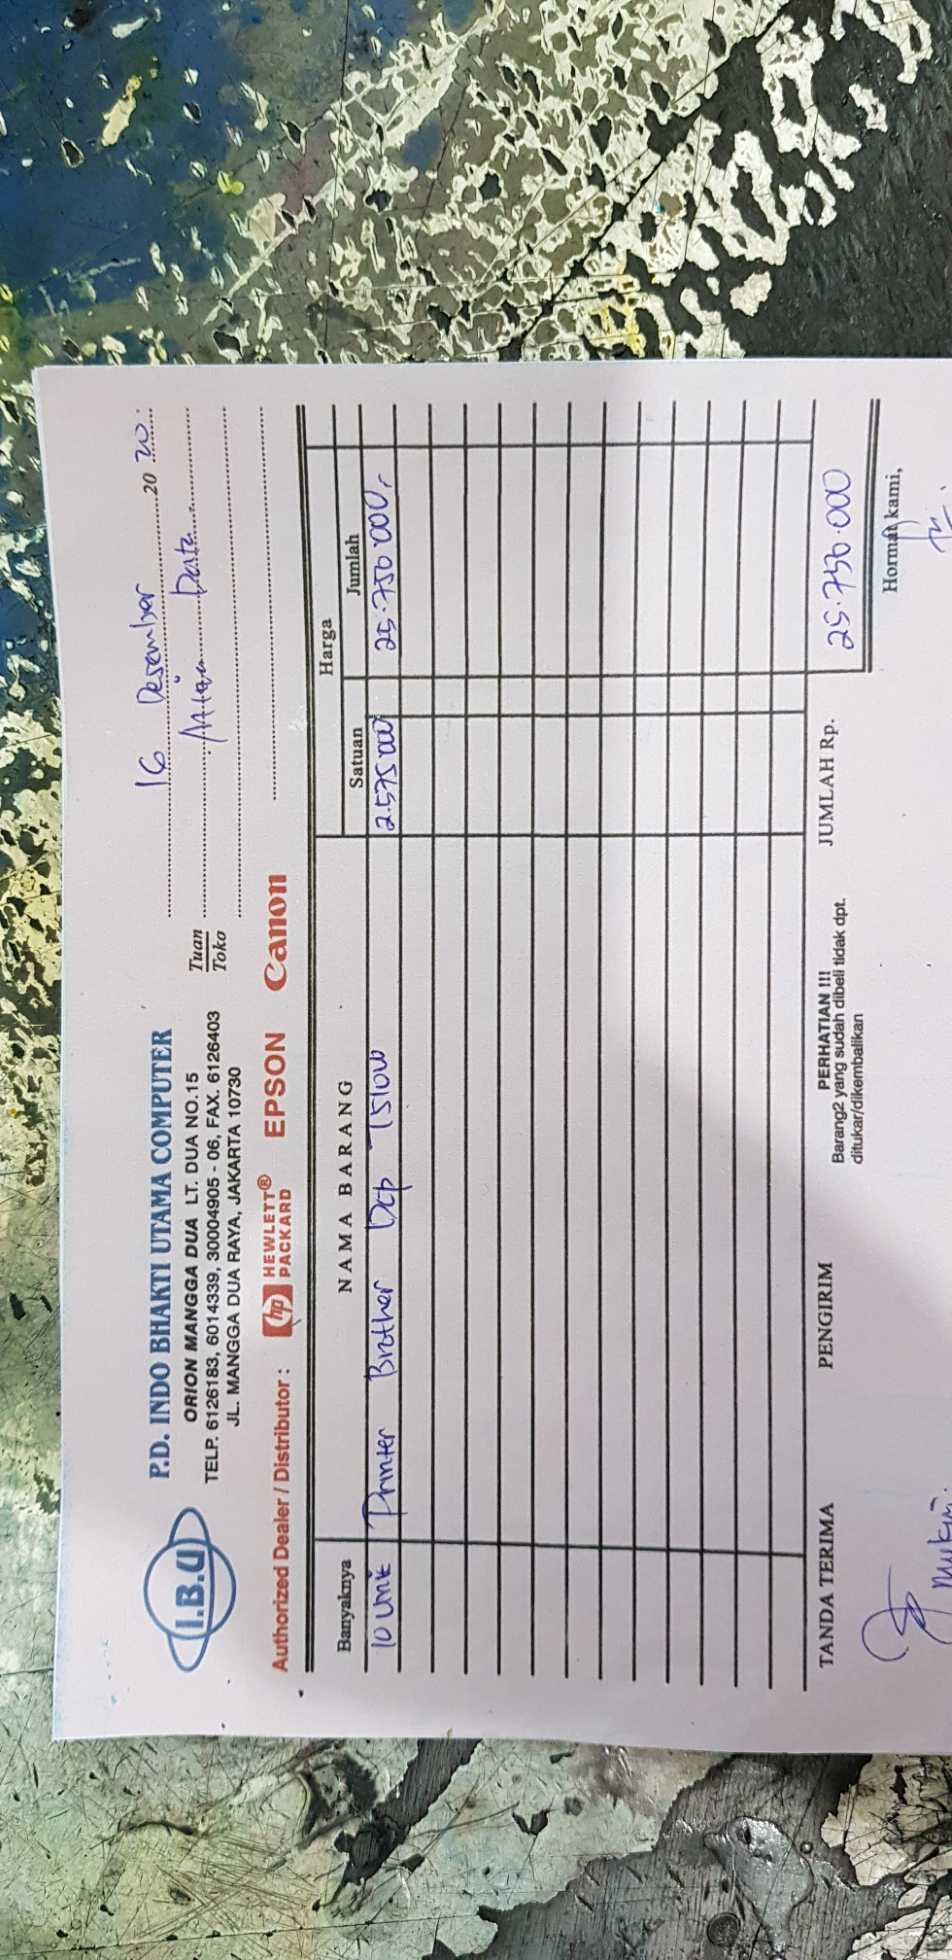 I.B.U
P.D. INDO BHAKTI UTAMA COMPUTER
ORION MANGGA DUA LT. DUA NO.15
TELP. 6126183, 6014339, 30004905 - 06, FAX. 6126403
JL. MANGGA DUA RAYA, JAKARTA 10730
16 Desember 20 20
Tuan
Toko
Data
Authorized Dealer / Distributor :
hp HEWLETT®
PACKARD
EPSON
Canon
Banyaknya NAMA BARANG Harga
Satuan Jumlah
10 unit Printer Brother Dcp T510W 2.575.000 25.750.000,-
TANDA TERIMA PENGIRIM
PERHATIAN !!!
Barang2 yang sudah dibeli tidak dpt.
ditukar/dikembalikan
JUMLAH Rp. 25.750.000
Hormat kami,